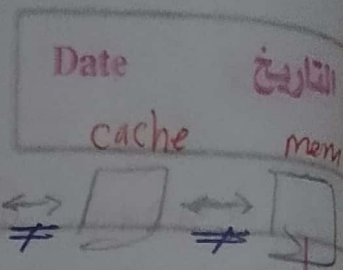 Date التاريخ
cache mem
≠ ≠